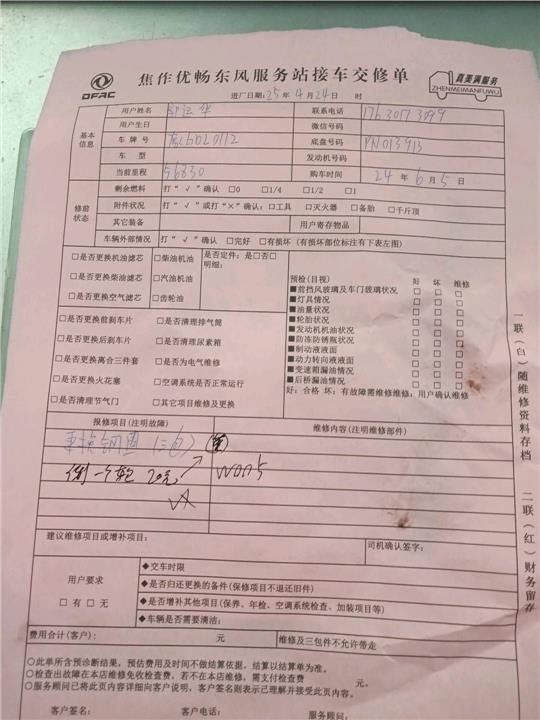 DFAC
焦作优畅东风服务站接车交修单
真美满服务
ZHENMEIMANFUWU
进厂日期:25年4月24日 时
基本信息
用户姓名
联系电话
用户生日
微信号码
车牌号
底盘号码 PN013913
车型
发动机号码
当前里程 56830
购车时间 24年6月5日
修前状态
剩余燃料 打“√”确认 □0 □1/4 □1/2 □1
附件状况 打“√”或打“×”确认:□工具 □灭火器 □备胎 □千斤顶
其它装备 用户寄存物品
车辆外部情况 打“√”确认 □完好 □有损坏(有损坏部位标注有下表左图)
□是否更换机油滤芯 □柴油机油
□是否更换柴油滤芯 □汽油机油
□是否更换空气滤芯 □齿轮油
是否定件:是□否□
明细:
□是否更换前刹车片 □是否清理排气筒
□是否更换后刹车片 □是否清理尿素箱
□是否更换离合三件套 □是否为电气维修
□是否更换火花塞 □空调系统是否正常运行
□是否清理节气门 □其它项目维修及更换
预检(目视) 好 坏 维修
■前挡风玻璃及车门玻璃状况 □ □ □
■灯具情况 □ □ □
■油量状况 □ □ □
■轮胎状况 □ □ □
■发动机机油状况 □ □ □
■防冻防锈瓶状况 □ □ □
■制动液液面 □ □ □
■动力转向液液面 □ □ □
■变速箱漏油情况 □ □ □
■后桥漏油情况 □ □ □
好:合格 坏:有故障需维修维修:用户确认维修
报修项目(注明故障) 维修内容(注明维修部件)
更换钢圈(三包)
一个轮 20元
建议维修项目或增补项目: 司机确认签字:
用户要求
□有 □无
◆交车时限
◆是否归还更换的备件(保修项目不退还旧件)
◆是否增补其他项目(保养、年检、空调系统检查、加装项目等)
◆车辆是否需要清洁:
费用合计(客户): 元 维修及三包件不允许带走
○此单所含预诊断结果,预估费用及时间不做结算依据,结算以结算单为准。
○检查出故障在本店维修免收检查费,若不在本店维修,需支付检查费 元。
○服务顾问已将此页内容详细向客户说明,客户签名则表示已理解并接受此页内容。
客户签名: 客户电话: 服务顾问:
一联(白)随维修资料存档
二联(红)财务留存